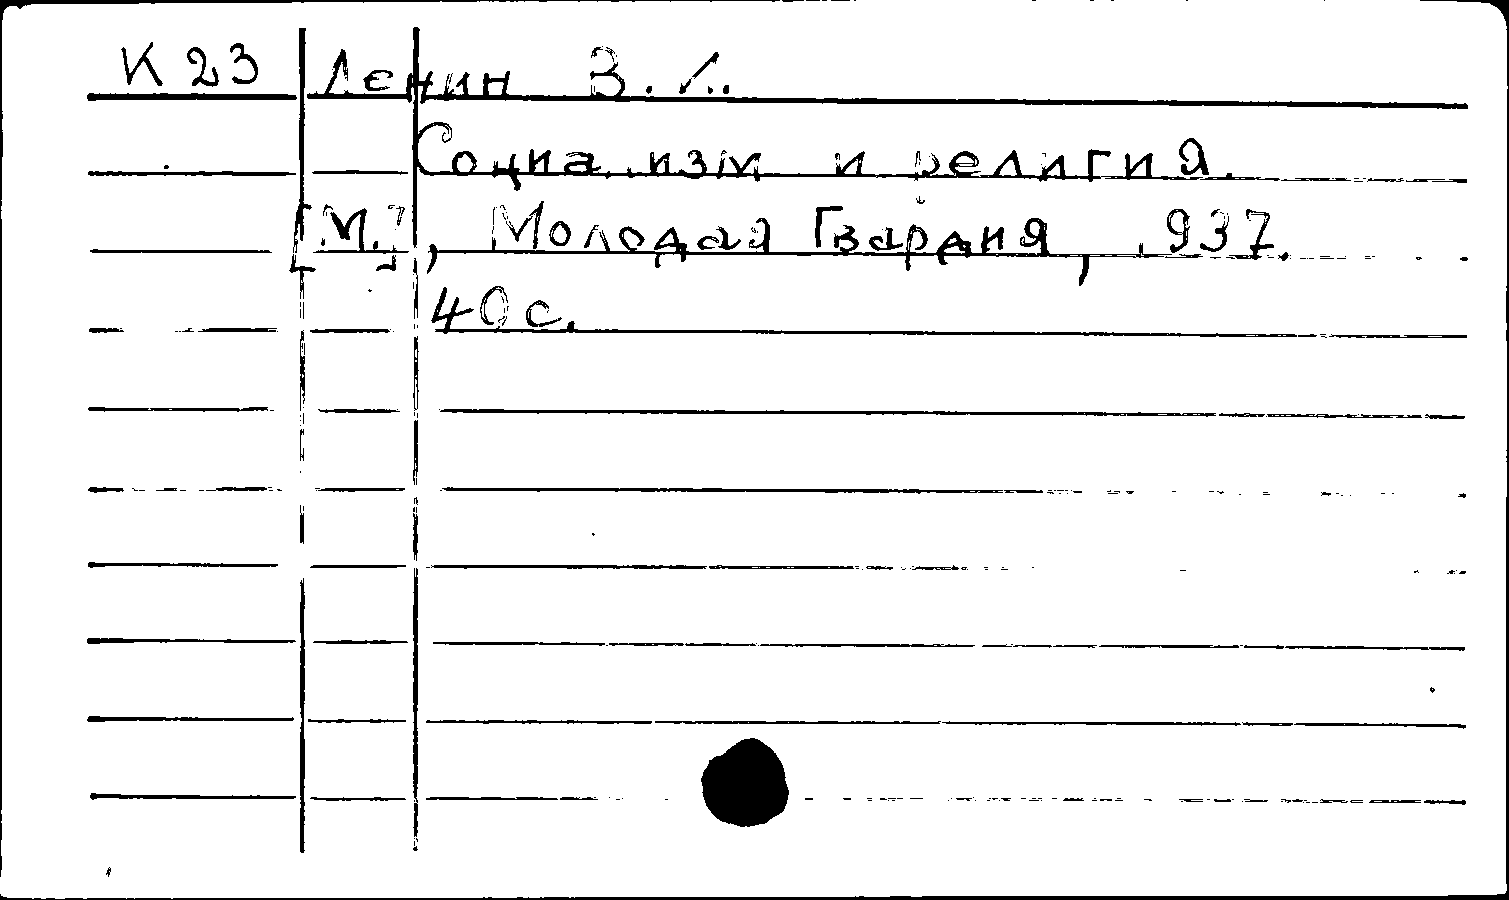 К 23 Ленин В. И.
Социализм и религия.
[М.], Молодая Гвардия, 1937.
40 с.